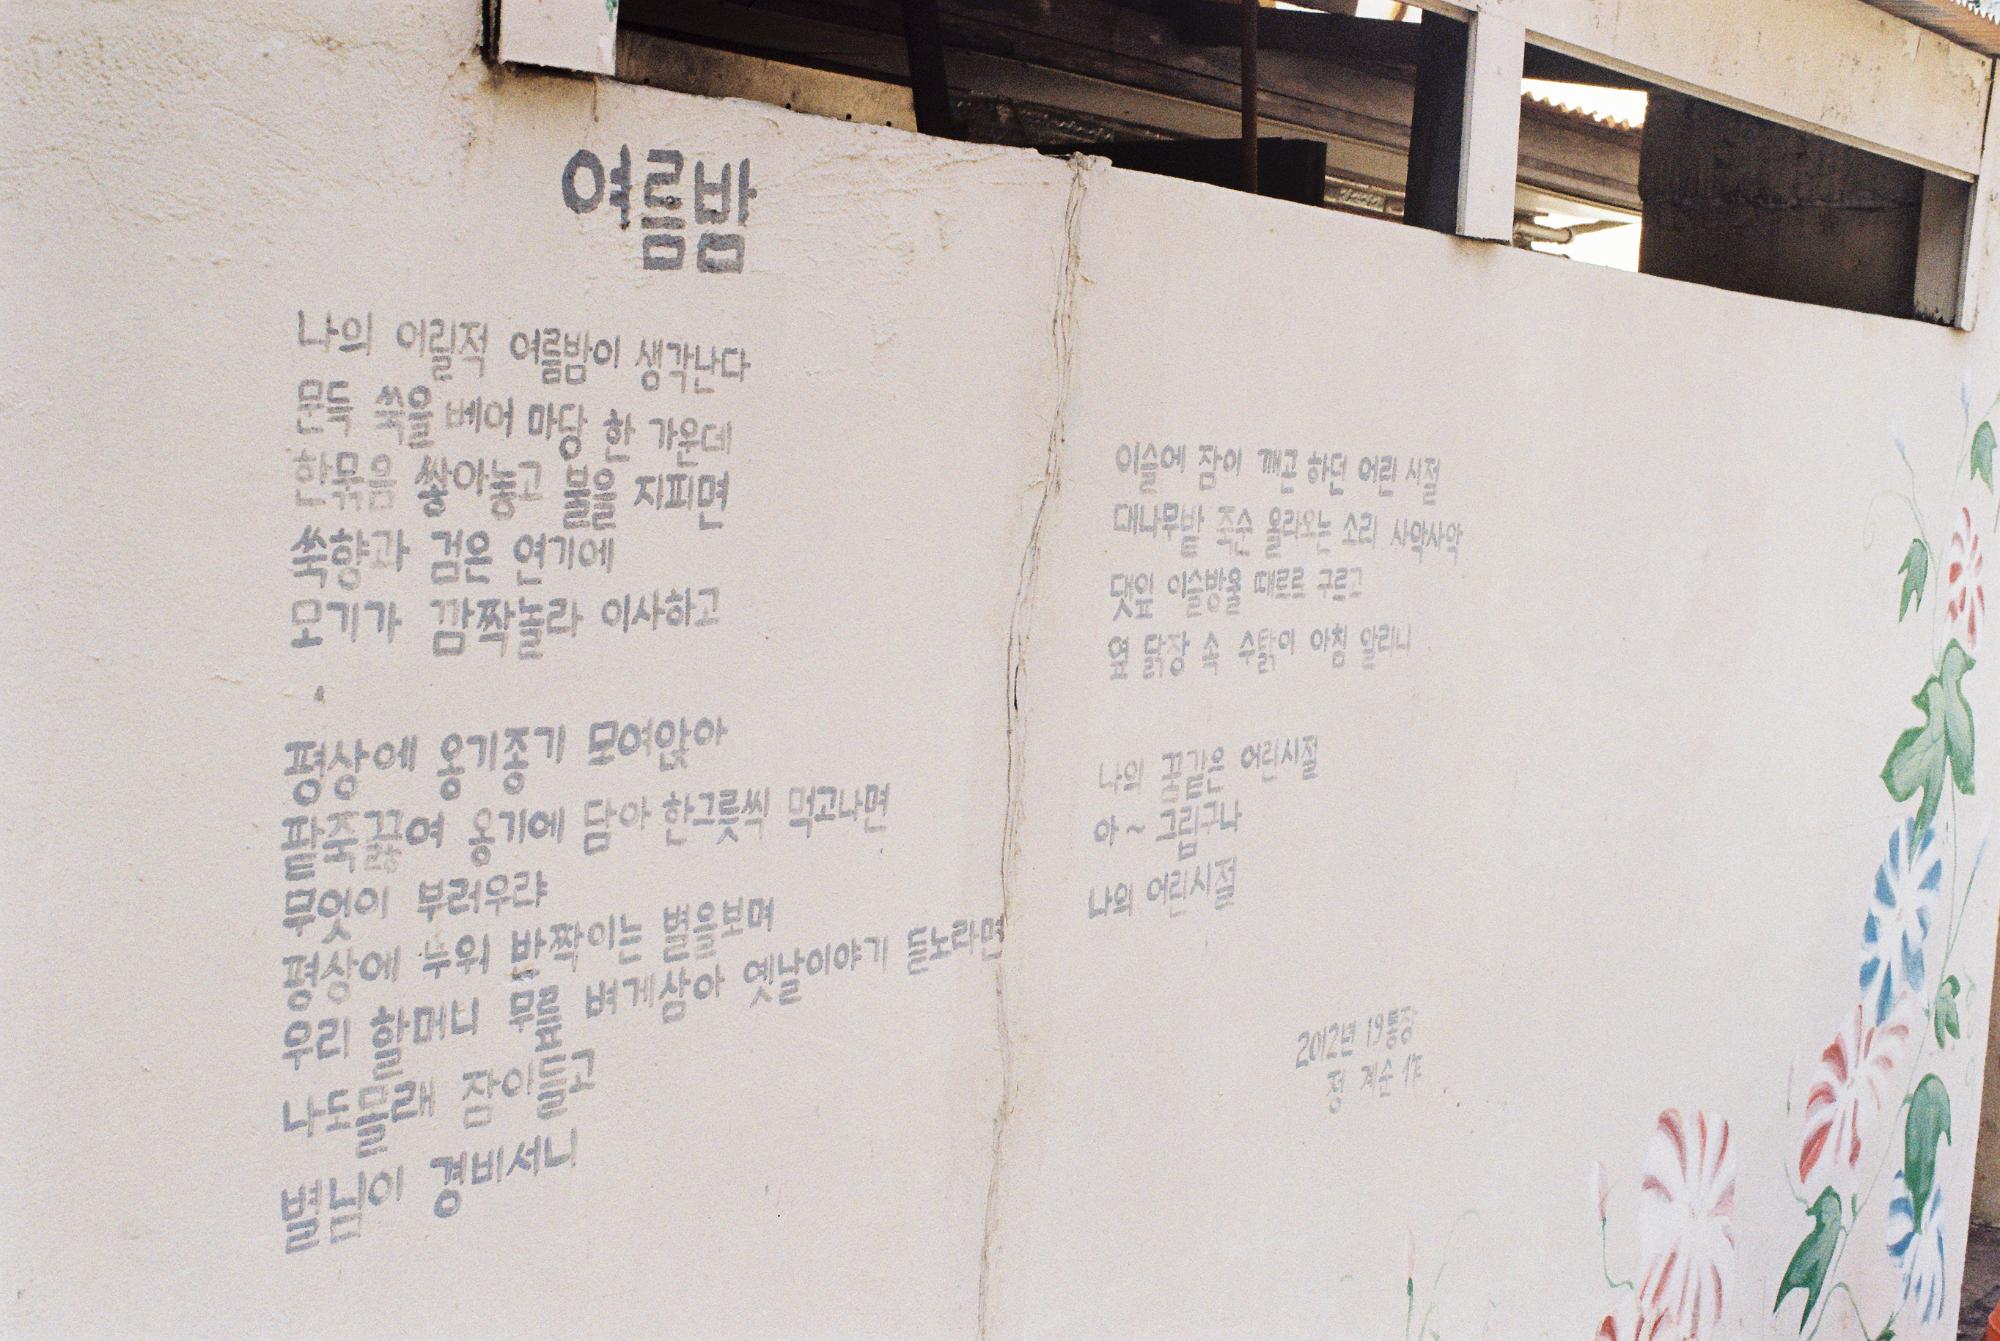 여름밤
나의 어릴적 여름밤이 생각난다
문득 쑥을 베어 마당 한 가운데
한묶음 쌓아놓고 불을 지피면
쑥향과 검은 연기에
모기가 깜짝놀라 이사하고
평상에 옹기종기 모여앉아
팥죽끓여 옹기에 담아 한그릇씩 먹고나면
무엇이 부러우랴
평상에 누워 반짝이는 별을보며
우리 할머니 무릎 벼게삼아 옛날이야기 듣노라면
나도몰래 잠이들고
별님이 경비서니
이슬에 잠이 깨곤 하던 어린 시절
대나무밭 죽순 올라오는 소리 사악사악
댓잎 이슬방울 때르르 구르고
옆 닭장 속 수탉이 아침 알리니
나의 꿈같은 어린시절
아~ 그립구나
나의 어린시절
2012년 19통장
정 계순 作